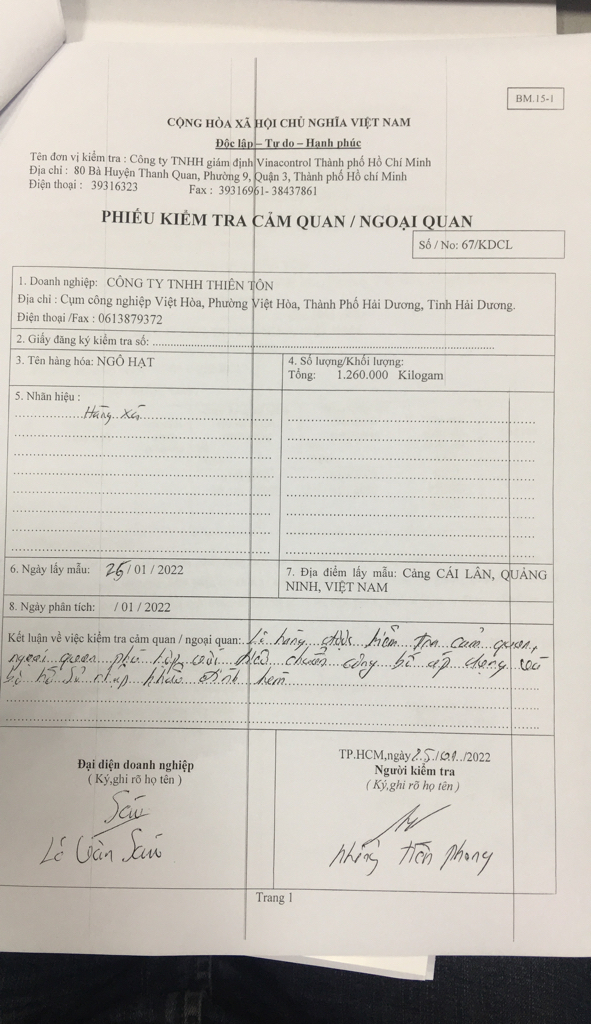 BM.15-1
CỘNG HÒA XÃ HỘI CHỦ NGHĨA VIỆT NAM
Độc lập – Tự do – Hạnh phúc
Tên đơn vị kiểm tra : Công ty TNHH giám định Vinacontrol Thành phố Hồ Chí Minh
Địa chỉ : 80 Bà Huyện Thanh Quan, Phường 9, Quận 3, Thành phố Hồ chí Minh
Điện thoại : 39316323 Fax : 39316961- 38437861
PHIẾU KIỂM TRA CẢM QUAN / NGOẠI QUAN
Số / No: 67/KDCL
1. Doanh nghiệp: CÔNG TY TNHH THIÊN TÔN
Địa chỉ : Cụm công nghiệp Việt Hòa, Phường Việt Hòa, Thành Phố Hải Dương, Tỉnh Hải Dương.
Điện thoại /Fax : 0613879372
2. Giấy đăng ký kiểm tra số:
3. Tên hàng hóa: NGÔ HẠT
4. Số lượng/Khối lượng:
Tổng: 1.260.000 Kilogam
5. Nhãn hiệu :
Hàng xá
6. Ngày lấy mẫu: 25 / 01 / 2022
7. Địa điểm lấy mẫu: Cảng CÁI LÂN, QUẢNG
NINH, VIỆT NAM
8. Ngày phân tích: / 01 / 2022
Kết luận về việc kiểm tra cảm quan / ngoại quan: Lô hàng được kiểm tra cảm quan,
ngoại quan phù hợp với tiêu chuẩn công bố áp dụng và
bộ hồ sơ nhập khẩu đính kèm
Đại diện doanh nghiệp
( Ký,ghi rõ họ tên )
TP.HCM,ngày 25/01/2022
Người kiểm tra
( Ký,ghi rõ họ tên )
Sáu
Lê Văn Sáu
Tiến Phong
Trang 1